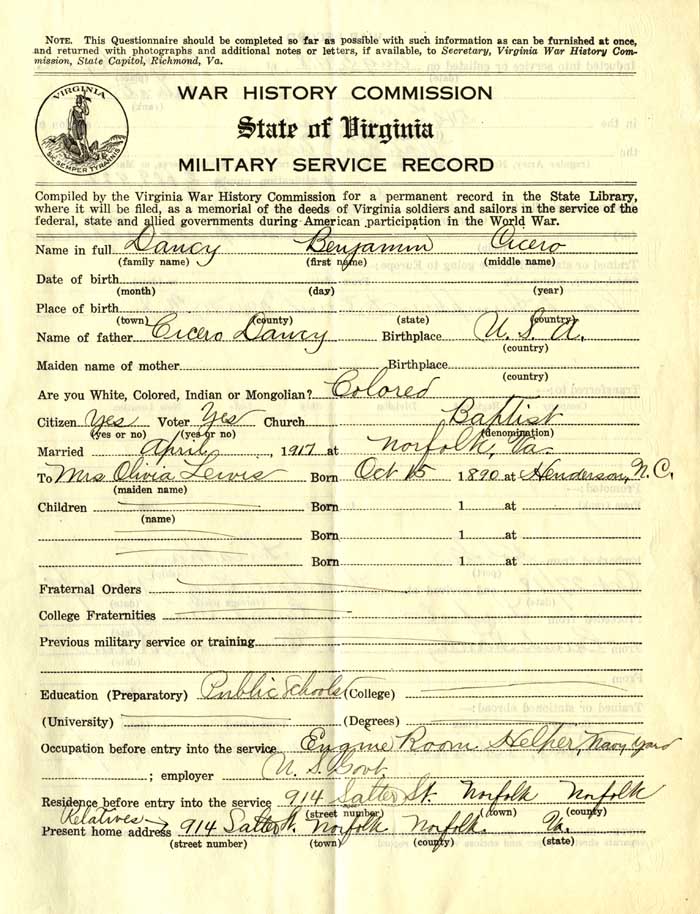 NOTE. This Questionnaire should be completed so far as possible with such information as can be furnished at once,
and returned with photographs and additional notes or letters, if available, to Secretary, Virginia War History Com-
mission, State Capitol, Richmond, Va.
VIRGINIA
SIC SEMPER TYRANNIS
WAR HISTORY COMMISSION
State of Virginia
MILITARY SERVICE RECORD
Compiled by the Virginia War History Commission for a permanent record in the State Library,
where it will be filed, as a memorial of the deeds of Virginia soldiers and sailors in the service of the
federal, state and allied governments during American participation in the World War.
Name in full Dancy Benjamin Cicero
(family name) (first name) (middle name)
Date of birth
(month) (day) (year)
Place of birth
(town) (county) (state) (country)
Name of father Cicero Dancy Birthplace U. S. A.
(country)
Maiden name of mother Birthplace
(country)
Are you White, Colored, Indian or Mongolian? Colored
Citizen Yes Voter Yes Church Baptist
(yes or no) (yes or no) (denomination)
Married April, 1917 at Norfolk, Va.
To Mrs Olivia Lewis Born Oct 15 1890 at Henderson, N.C.
(maiden name)
Children Born 1 at
(name)
Born 1 at
Born 1 at
Fraternal Orders
College Fraternities
Previous military service or training
Education (Preparatory) Public Schools (College)
(University) (Degrees)
Occupation before entry into the service Engine Room Helper, Navy Yard
; employer U. S. Govt
Residence before entry into the service 914 Salter St. Norfolk Norfolk
(street number) (town) (county)
Relatives
Present home address 914 Salter St. Norfolk Norfolk. Va.
(street number) (town) (county) (state)